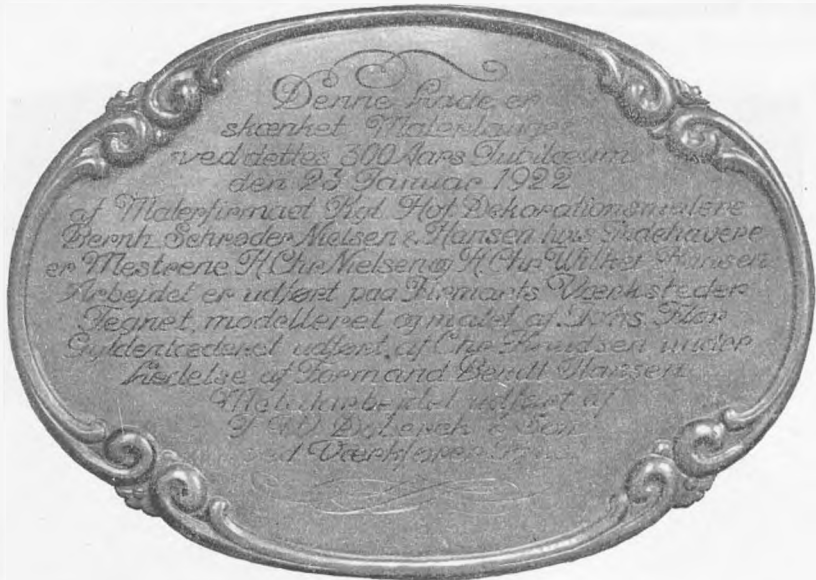 Denne Lade er
skænket Malerlauget
ved dettes 300 Aars Jubilæum
den 23 Januar 1922
af Malerfirmaet Kgl. Hof Dekorationsmalere
Bernh. Schrøder Nielsen & Hansen hvis Indehavere
er Mestrene H. Chr. Nielsen og H. Chr. Wilhet Hansen
Arbejdet er udført paa Firmaets Værksteder
Tegnet, modelleret og malet af Johs.
Gyldenlæderet udført af Chr. Knudsen under
Ledelse af Formand Berdt Hansen
Metalarbejdet udført af
& Søn
ved Værkfører